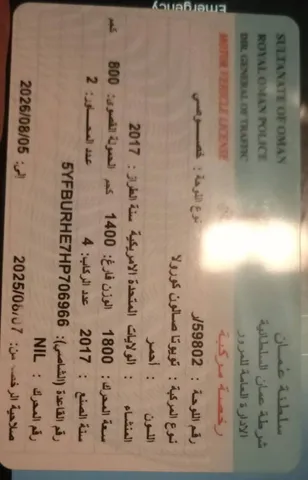 Emergency
سلطنة عمان
SULTANATE OF OMAN
شرطة عمان السلطانية
ROYAL OMAN POLICE
الادارة العامة للمرور
DIR. GENERAL OF TRAFFIC
رخصة مركبة
MOTOR VEHICLE LICENSE
رقم اللوحة : 59802/ر نوع اللوحة : خصوصي
نوع المركبة : تويوتا صالون كورولا
اللون : أحمر
المنشاء : الولايات المتحدة الامريكية سنة الطراز : 2017
سعة المحرك : 1800 الوزن فارغ : 1400 كجم الحمولة القصوى : 800 كجم
سنة الصنع : 2017 عدد الركاب : 4 عدد المحاور : 2
رقم القاعدة (الشاصي): 5YFBURHE7HP706966
رقم المحرك : NIL
صلاحية الرخصة من: الى: 2026/08/05